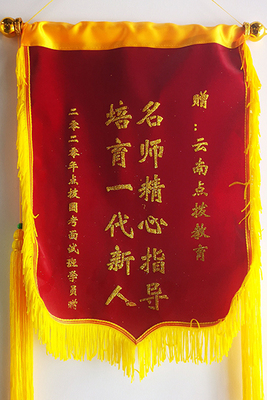 赠：云南点拨教育
名师精心指导
培育一代新人
二零二零年点拨国考面试班学员赠